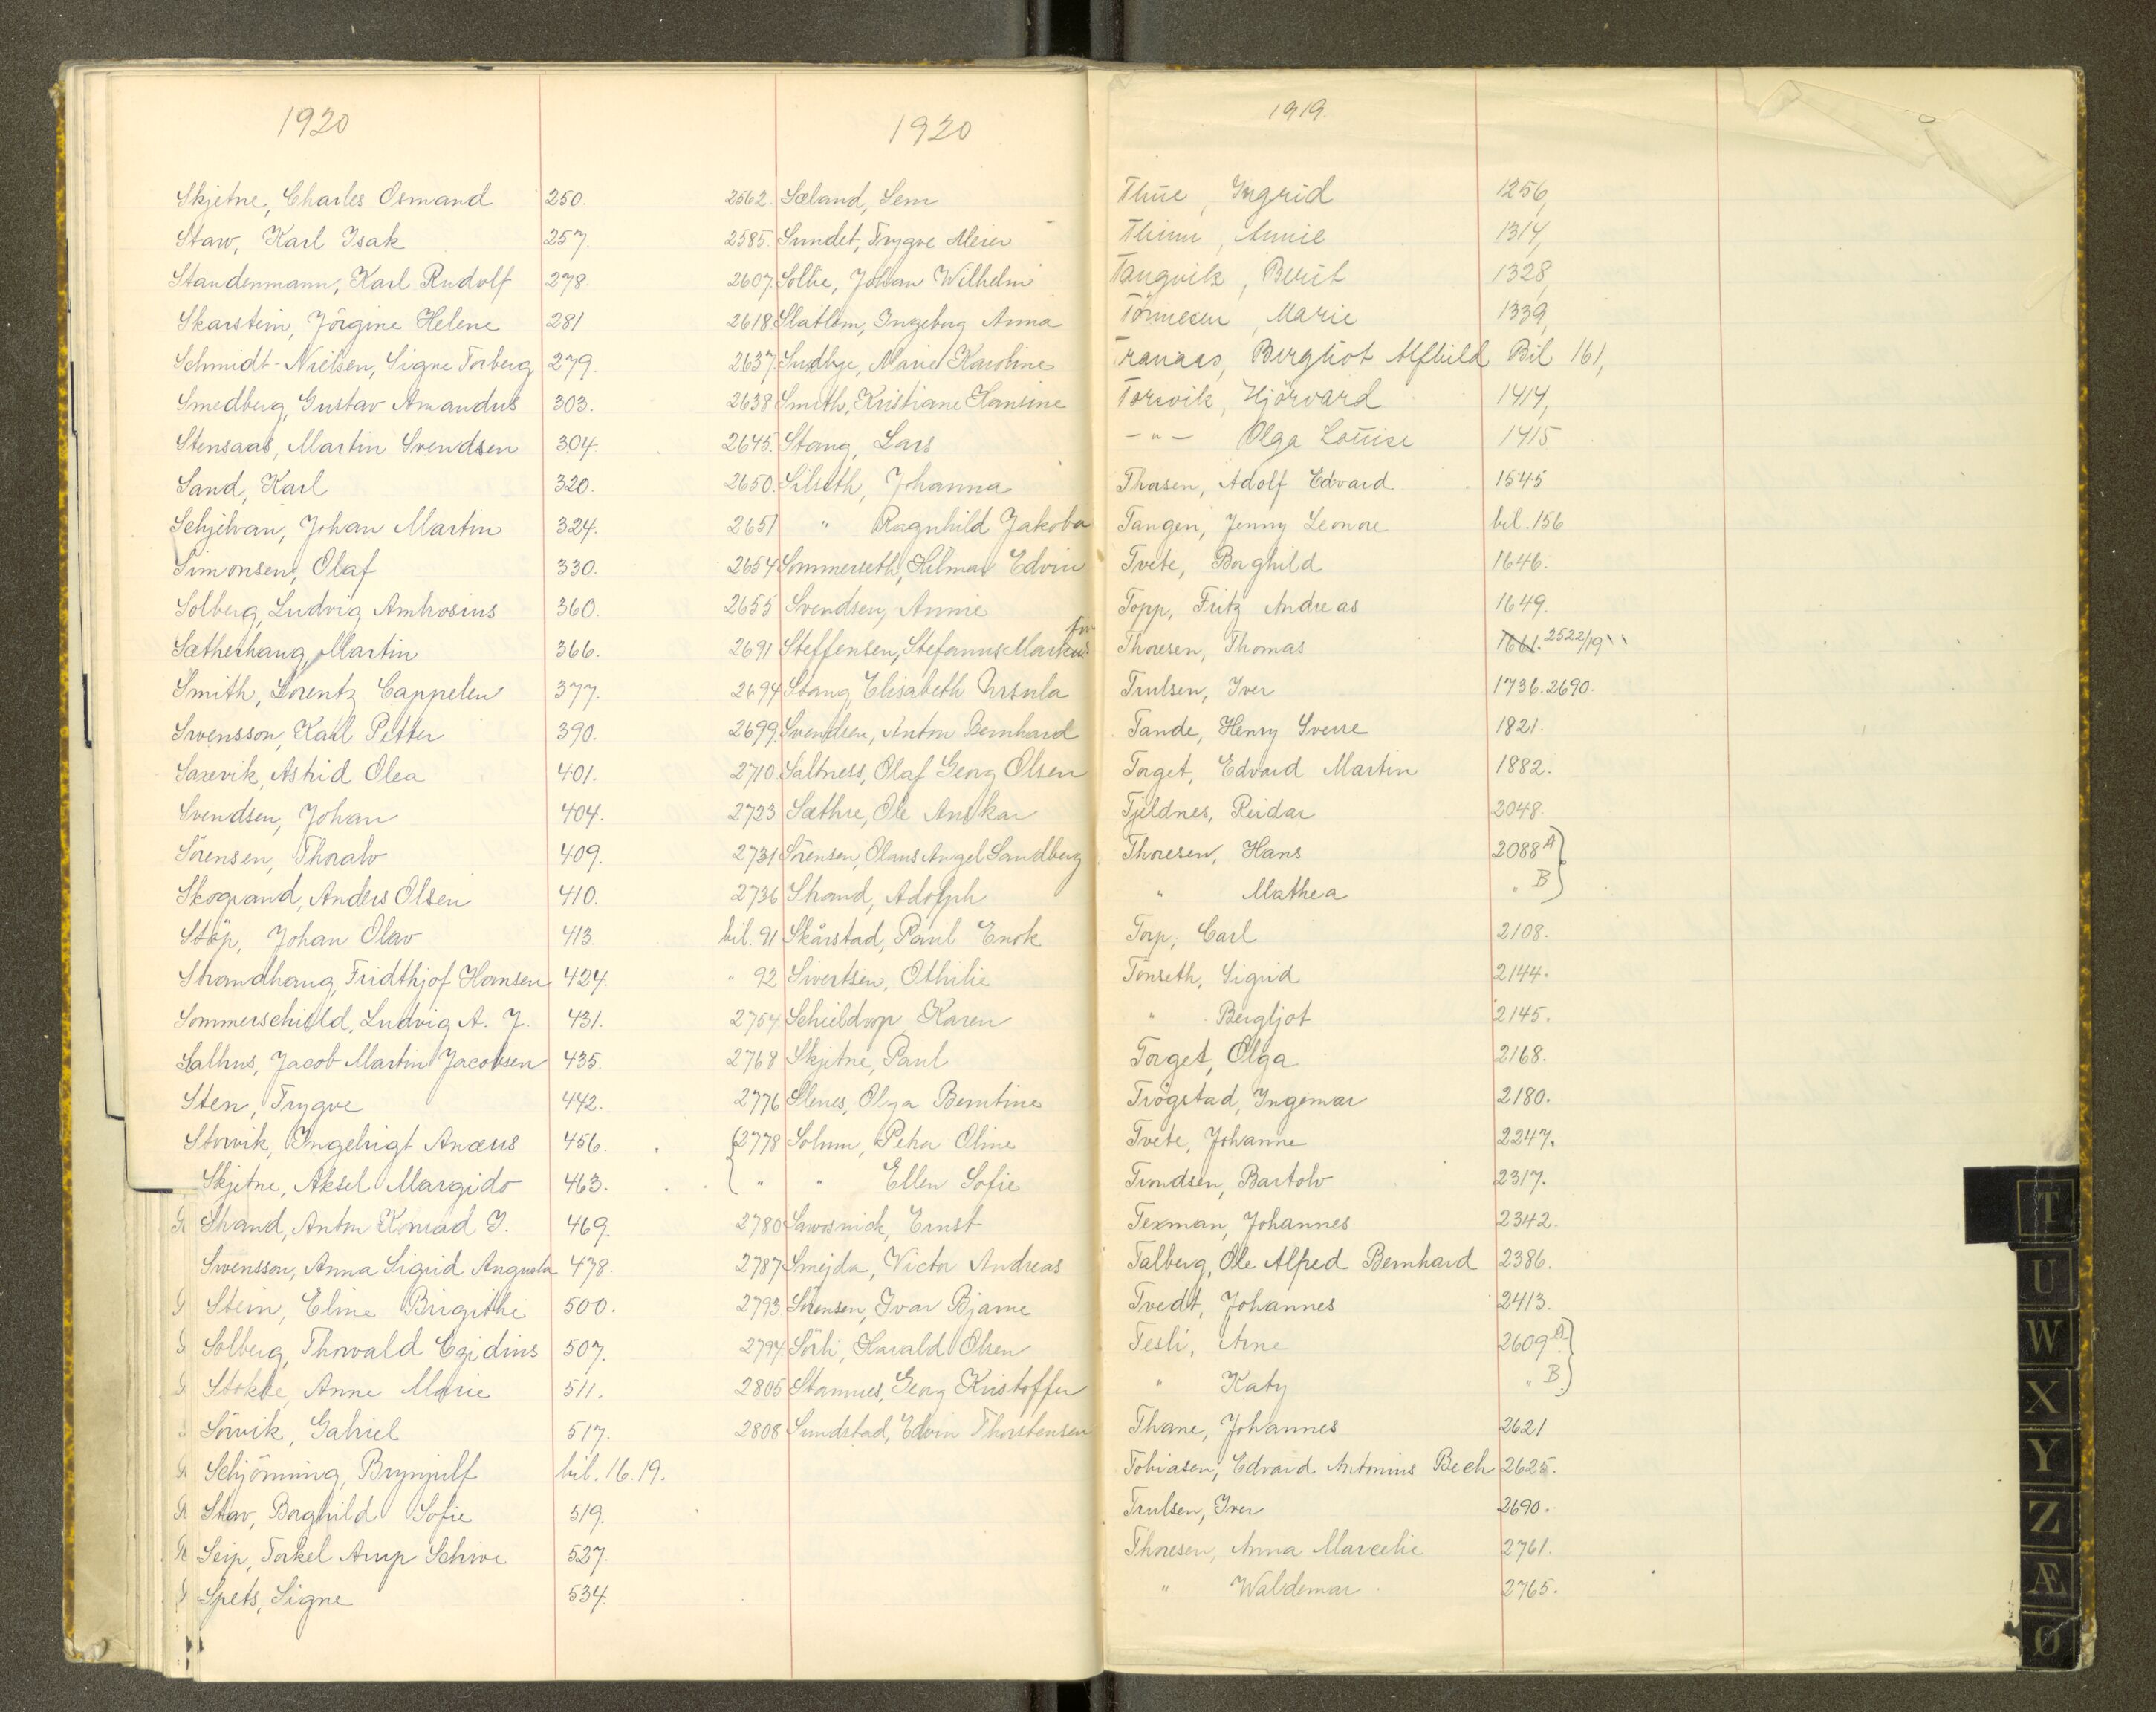 1920
Skjetne, Charles Osmand 250.
Staw, Karl Isak 257.
Standenmann, Karl Rudolf 278.
Skarstein, Jörgine Helene 281
Schmidt-Nielsen, Signe Torberg 279.
Smedberg, Gustav Amandus 303.
Stensaas, Martin Svendsen 304.
Sand, Karl 320.
Schjelvan, Johan Martin 324.
Simonsen, Olaf 330.
Solberg, Ludvig Ambrosius 360.
Sætherhaug, Martin 366.
Smith, Lorentz Cappelen 377.
Svensson, Karl Petter 390.
Saxevik, Astrid Olea 401.
Svendsen, Johan 404.
Sörensen, Thoralv 409.
Skogrand, Anders Olsen 410.
Stöp, Johan Olav 413.
Strandhaug, Fridthjof Hansen 424.
Sommerschield, Ludvig A. J. 431.
Salhus, Jacob Martin Jacobsen 435.
Sten, Trygve 442.
Storvik, Ingebrigt Anæus 456.
Skjetne, Aksel Margido 463.
Strand, Anton Konrad J. 469.
Svensson, Anna Sigrid Augusta 478.
Stein, Eline Birgithe 500.
Solberg, Thorvald Egidius 507.
Stokke, Anne Marie 511.
Sörvik, Gabriel 517.
Schjönning, Brynjulf bil. 16.19.
Stav, Borghild Sofie 519.
Seip, Torkel Arup Schive 527.
Spets, Signe 534.
1920
2562. Sæland, Sem
2585. Sundet, Trygve Meier
2607. Sollie, Johan Wilhelm
2618 Slatlem, Ingeborg Anna
2637. Sudbye, Marie Karoline
2638 Smith, Kristiane Hansine
2645. Stang, Lars
2650. Silseth, Johanna
2651 " Ragnhild Jakoba
2654 Sommerseth, Hilmar Edvin
2655 Svendsen, Annie
2691 Steffensen, Stefanus Markus
2694 Stang, Elisabeth Ursula
2699 Svendsen, Anton Bernhard
2710 Saltness, Olaf Georg Olsen
2723 Sæthre, Ole Anskar
2731 Sörensen, Olaus Angel Sandberg
2736 Strand, Adolph
bil. 91 Skårstad, Paul Enok
" 92 Sivertsen, Othilie
2754 Schieldrop, Karen
2768 Skjetne, Paul
2776 Slenes, Olga Berntine
2778 Solum, Petra Oline
" " Ellen Sofie
2780 Sawosnick, Ernst
2787 Smejda, Victor Andreas
2793 Sörensen, Ivar Bjarne
2794. Sörli, Harald Olsen
2805 Stamnes, Georg Kristoffer
2808 Sundstad, Edvin Thorstensen
1919.
Thue, Ingrid 1256,
Thinn, Annie 1314,
Tangvik, Berit 1328,
Tönnesen, Marie 1339,
Tranaas, Bergliot Alfhild Bil 161,
Torsvik, Hjörvard 1414,
-"- Olga Louise 1415
Thorsen, Adolf Edvard 1545
Tangen, Jenny Leonore bil. 156
Tvete, Borghild 1646.
Topp, Fritz Andreas 1649.
Thoresen, Thomas 1661. 2522/19
Trulsen, Iver 1736. 2690.
Tande, Henry Sverre 1821.
Torget, Edvard Martin 1882.
Tjeldnes, Reidar 2048.
Thoresen, Hans 2088 A
" Mathea " B
Torp, Carl 2108.
Tönseth, Sigrid 2144.
" Bergljot 2145.
Torget, Olga 2168.
Trögstad, Ingemar 2180.
Tvete, Johanne 2247.
Trondsen, Bartolv 2317.
Texman, Johannes 2342.
Talberg, Ole Alfred Bernhard 2386.
Tvedt, Johannes 2413.
Tesli, Arne 2609 A
" Katy " B
Thane, Johannes 2621
Tobiasen, Edvard Antonius Bech 2625.
Trulsen, Iver 2690.
Thoresen, Anna Marcelie 2761.
" Waldemar 2765.
T
U
W
X
Y
Z
Æ
Ø